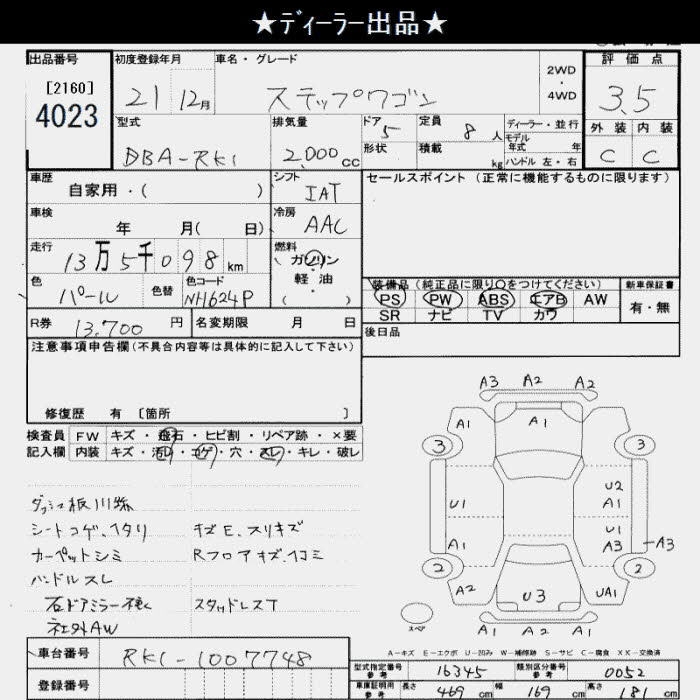 ★ディーラー出品★
出品番号 初度登録年月 車名・グレード 2WD・4WD 評価点
[2160]
4023 21 12月 ステップワゴン 3.5
型式 排気量 ドア 5 定員 8人 ディーラー・並行 外装 内装
DBA-RK1 2,000cc 形状 積載 kg モデル年式 年 ハンドル 左・右 C C
車歴 シフト セールスポイント (正常に機能するものに限ります)
自家用・( ) IAT
車検 冷房
年 月( 日) AAC
走行 燃料
13万5千098km ガソリン・軽油
色 色替 色コード ( ) 装備品 (純正品に限り○をつけてください) 新車保証書
パール NH624P PS PW ABS エアB AW 有・無
SR ナビ TV カワ
R券 13,700円 名変期限 月 日 後日品
注意事項申告欄 (不具合内容等は具体的に記入して下さい)
修復歴 有 [箇所 ]
検査員 FW キズ・飛石・ヒビ割・リペア跡・×要
記入欄 内装 キズ・汚レ・コゲ・穴・スレ・キレ・破レ
シートコゲ、ヘタリ キズE、スリキズ
カーペットシミ Rフロアキズ、ヘコミ
ハンドルスレ
スタッドレスT
社外AW
A3 A2 A2
A1 A1 A1
3 3
U1 U2
A1
U1
A1 A3 A3
2 2
A2 U3 UA1
スペア A1 A2 A1
A-キズ E-エクボ U-凹み W-補修跡 S-サビ C-腐食 XX-交換済
車台番号 RK1-1007748 型式指定番号 参考 16345 類別区分番号 参考 0052
登録番号 車庫証明用 参考 長さ 469cm 幅 169cm 高さ 181cm